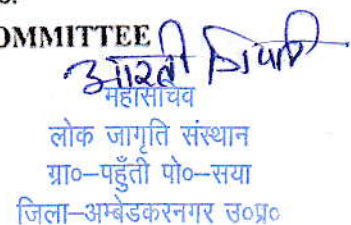 OMMITTEE
आरती त्रिपाठी
महासचिव
लोक जागृति संस्थान
ग्रा०–पहुँती पो०–सया
जिला–अम्बेडकरनगर उ०प्र०